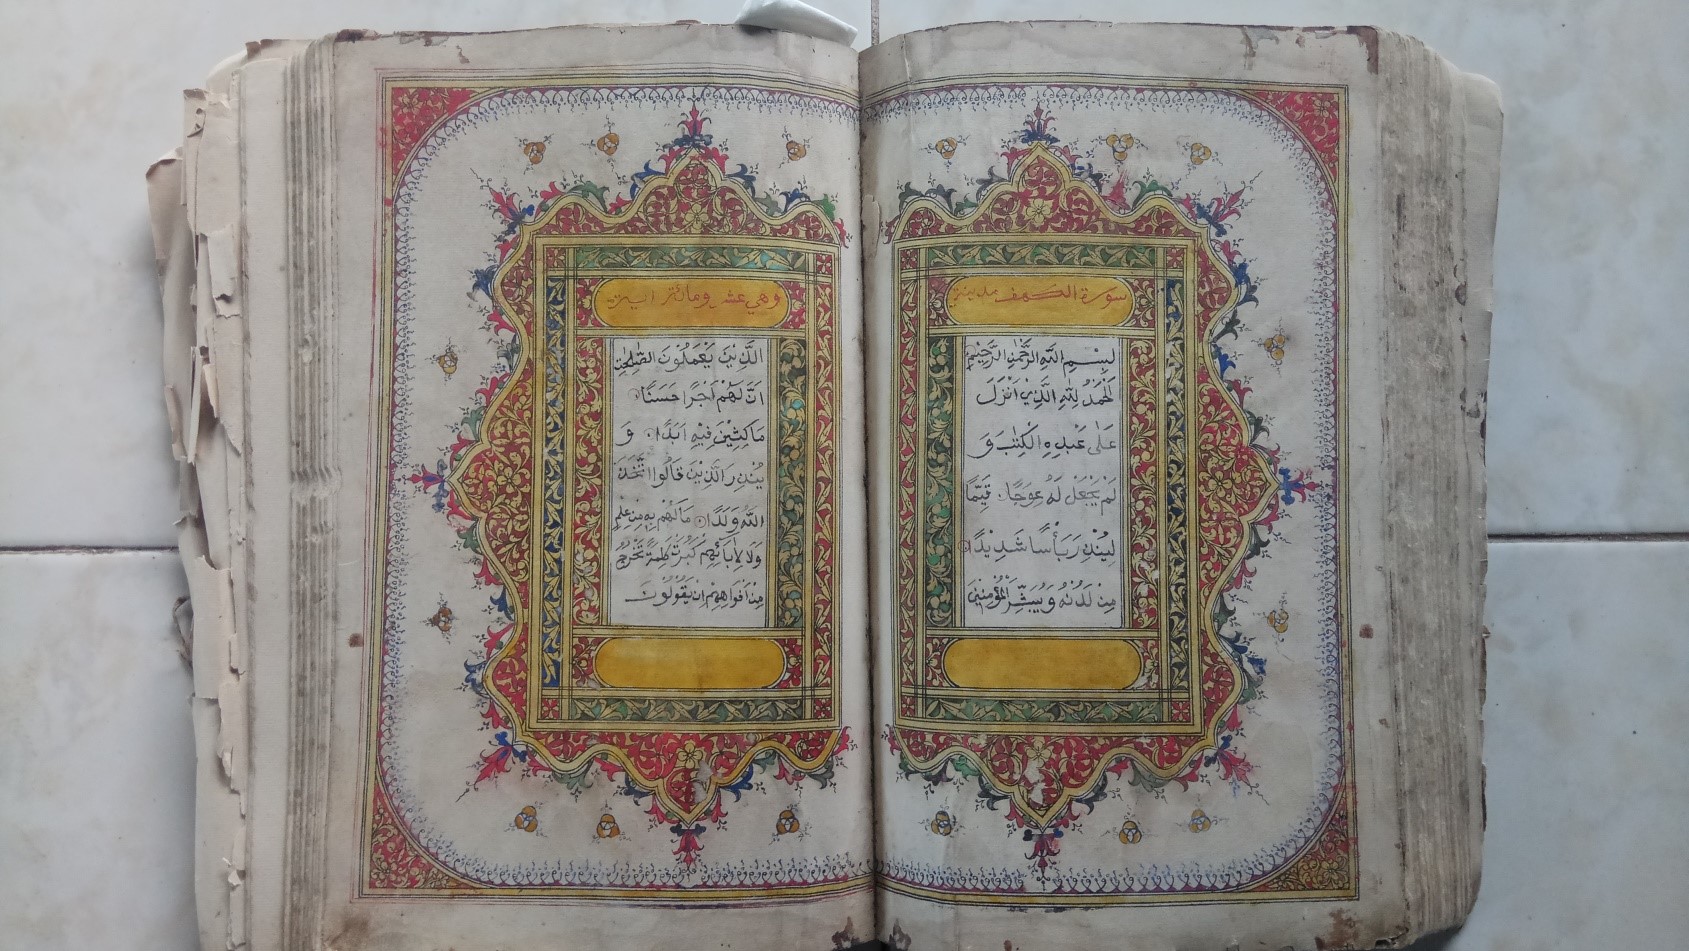 سورة الكهف مدينية
بِسْمِ اللَّهِ الرَّحْمٰنِ الرَّحِيْمِ
اَلْحَمْدُ لِلّٰهِ الَّذِيْ اَنْزَلَ
عَلٰى عَبْدِهِ الْكِتٰبَ وَ
لَمْ يَجْعَلْ لَهُ عِوَجًا قَيِّمًا
لِيُنْذِرَ بَأْسًا شَدِيْدًا
مِنْ لَدُنْهُ وَيُبَشِّرَ الْمُؤْمِنِيْنَ
وهي عشر ومائة اية
الَّذِيْنَ يَعْمَلُوْنَ الصّٰلِحٰتِ
اَنَّ لَهُمْ اَجْرًا حَسَنًا
مَاكِثِيْنَ فِيْهِ اَبَدًا وَ
يُنْذِرَ الَّذِيْنَ قَالُوا اتَّخَذَ
اللّٰهُ وَلَدًا مَالَهُمْ بِهِ مِنْ عِلْمٍ
وَلَا لِاٰبَائِهِمْ كَبُرَتْ كَلِمَةً تَخْرُجُ
مِنْ اَفْوَاهِهِمْ اِنْ يَقُوْلُوْنَ